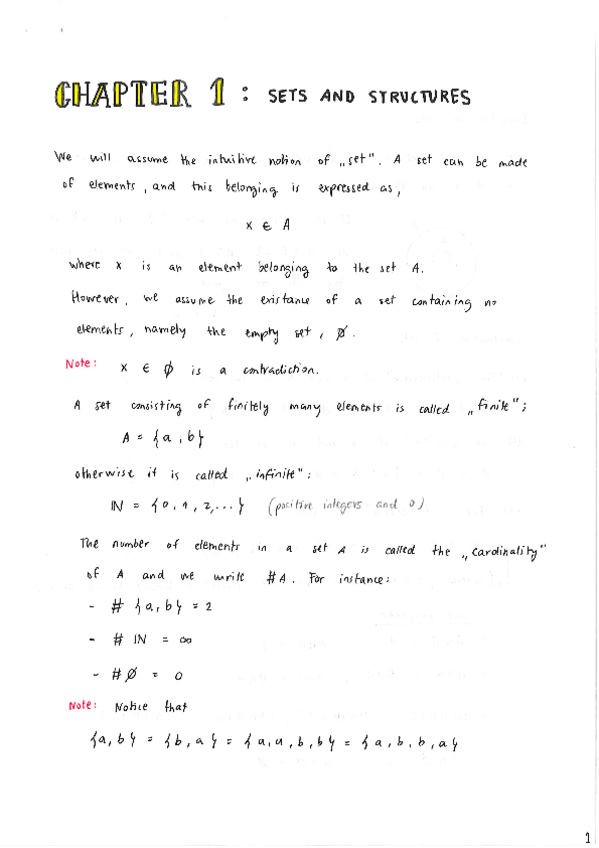 CHAPTER 1 : SETS AND STRUCTURES
We will assume the intuitive notion of „set". A set can be made
of elements, and this belonging is expressed as,
x ∈ A
where x is an element belonging to the set A.
However, we assume the existance of a set containing no
elements, namely the empty set, ∅.
Note: x ∈ ∅ is a contradiction.
A set consisting of finitely many elements is called „finite";
A = {a, b}
otherwise it is called „infinite":
ℕ = {0, 1, 2, ...} (positive integers and 0)
The number of elements in a set A is called the „cardinality"
of A and we write #A. For instance:
- # {a, b} = 2
- # ℕ = ∞
- # ∅ = 0
Note: Notice that
{a, b} = {b, a} = {a, a, b, b} = {a, b, b, a}
1